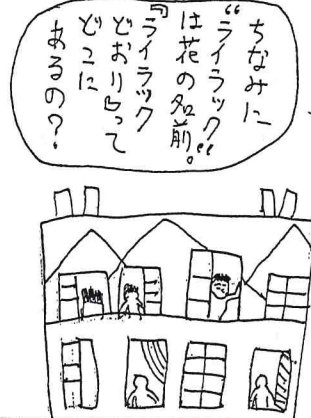 ちなみに
“ライラック”
は花の名前。
『ライラック
どおり』って
どこに
あるの?